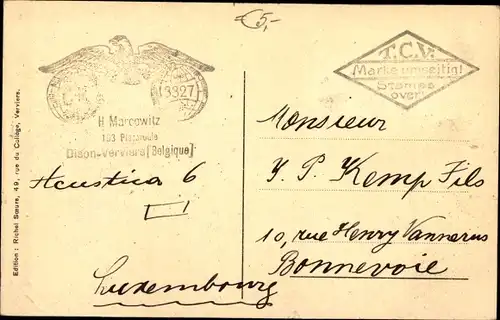 €5,-
T.C.V.
Marke umseitig!
Stamps
over!
13327
H Marcowitz
193 Pisseroule
Dison-Verviers (Belgique)
Acustica 6
Luxembourg
Monsieur
J. P. Kemp Fils
10, rue Henry Vannerus
Bonnevoie
Edition: Richel Sœurs, 49, rue du Collège, Verviers.